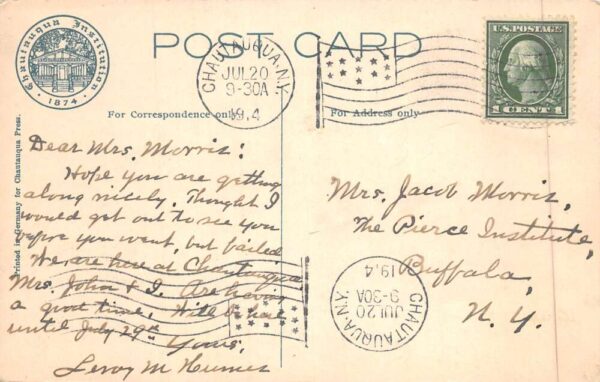 Chautauqua Institution
1874
POST CARD
CHAUTAUQUA, N.Y.
JUL 20
9-30A
1914
U.S. POSTAGE
1 CENT 1
For Correspondence only
For Address only
Printed in Germany for Chautauqua Press.
Dear Mrs. Morris:
Hope you are getting
along nicely. Thought I
would get out to see you
before you went, but failed
We are here at Chautauqua
Mrs. John & I. Are having
a good time. Will be here
until July 29th
Yours,
Leroy M
Mrs. Jacob Morris,
The Pierce Institute,
Buffalo,
N. Y.
CHAUTAUQUA, N.Y.
JUL 20
9-30A
1914